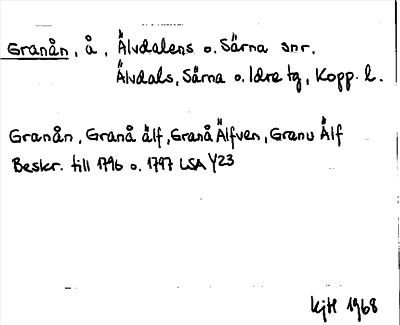 Granån, å, Älvdalens o. Särna snr.
Älvdals, Särna o. Idre tg, Kopp. l.
Granån, Granå älf, Granå Älfven, Granu Älf
Beskr. till 1796 o. 1797 LSA Y23
KjH 1968